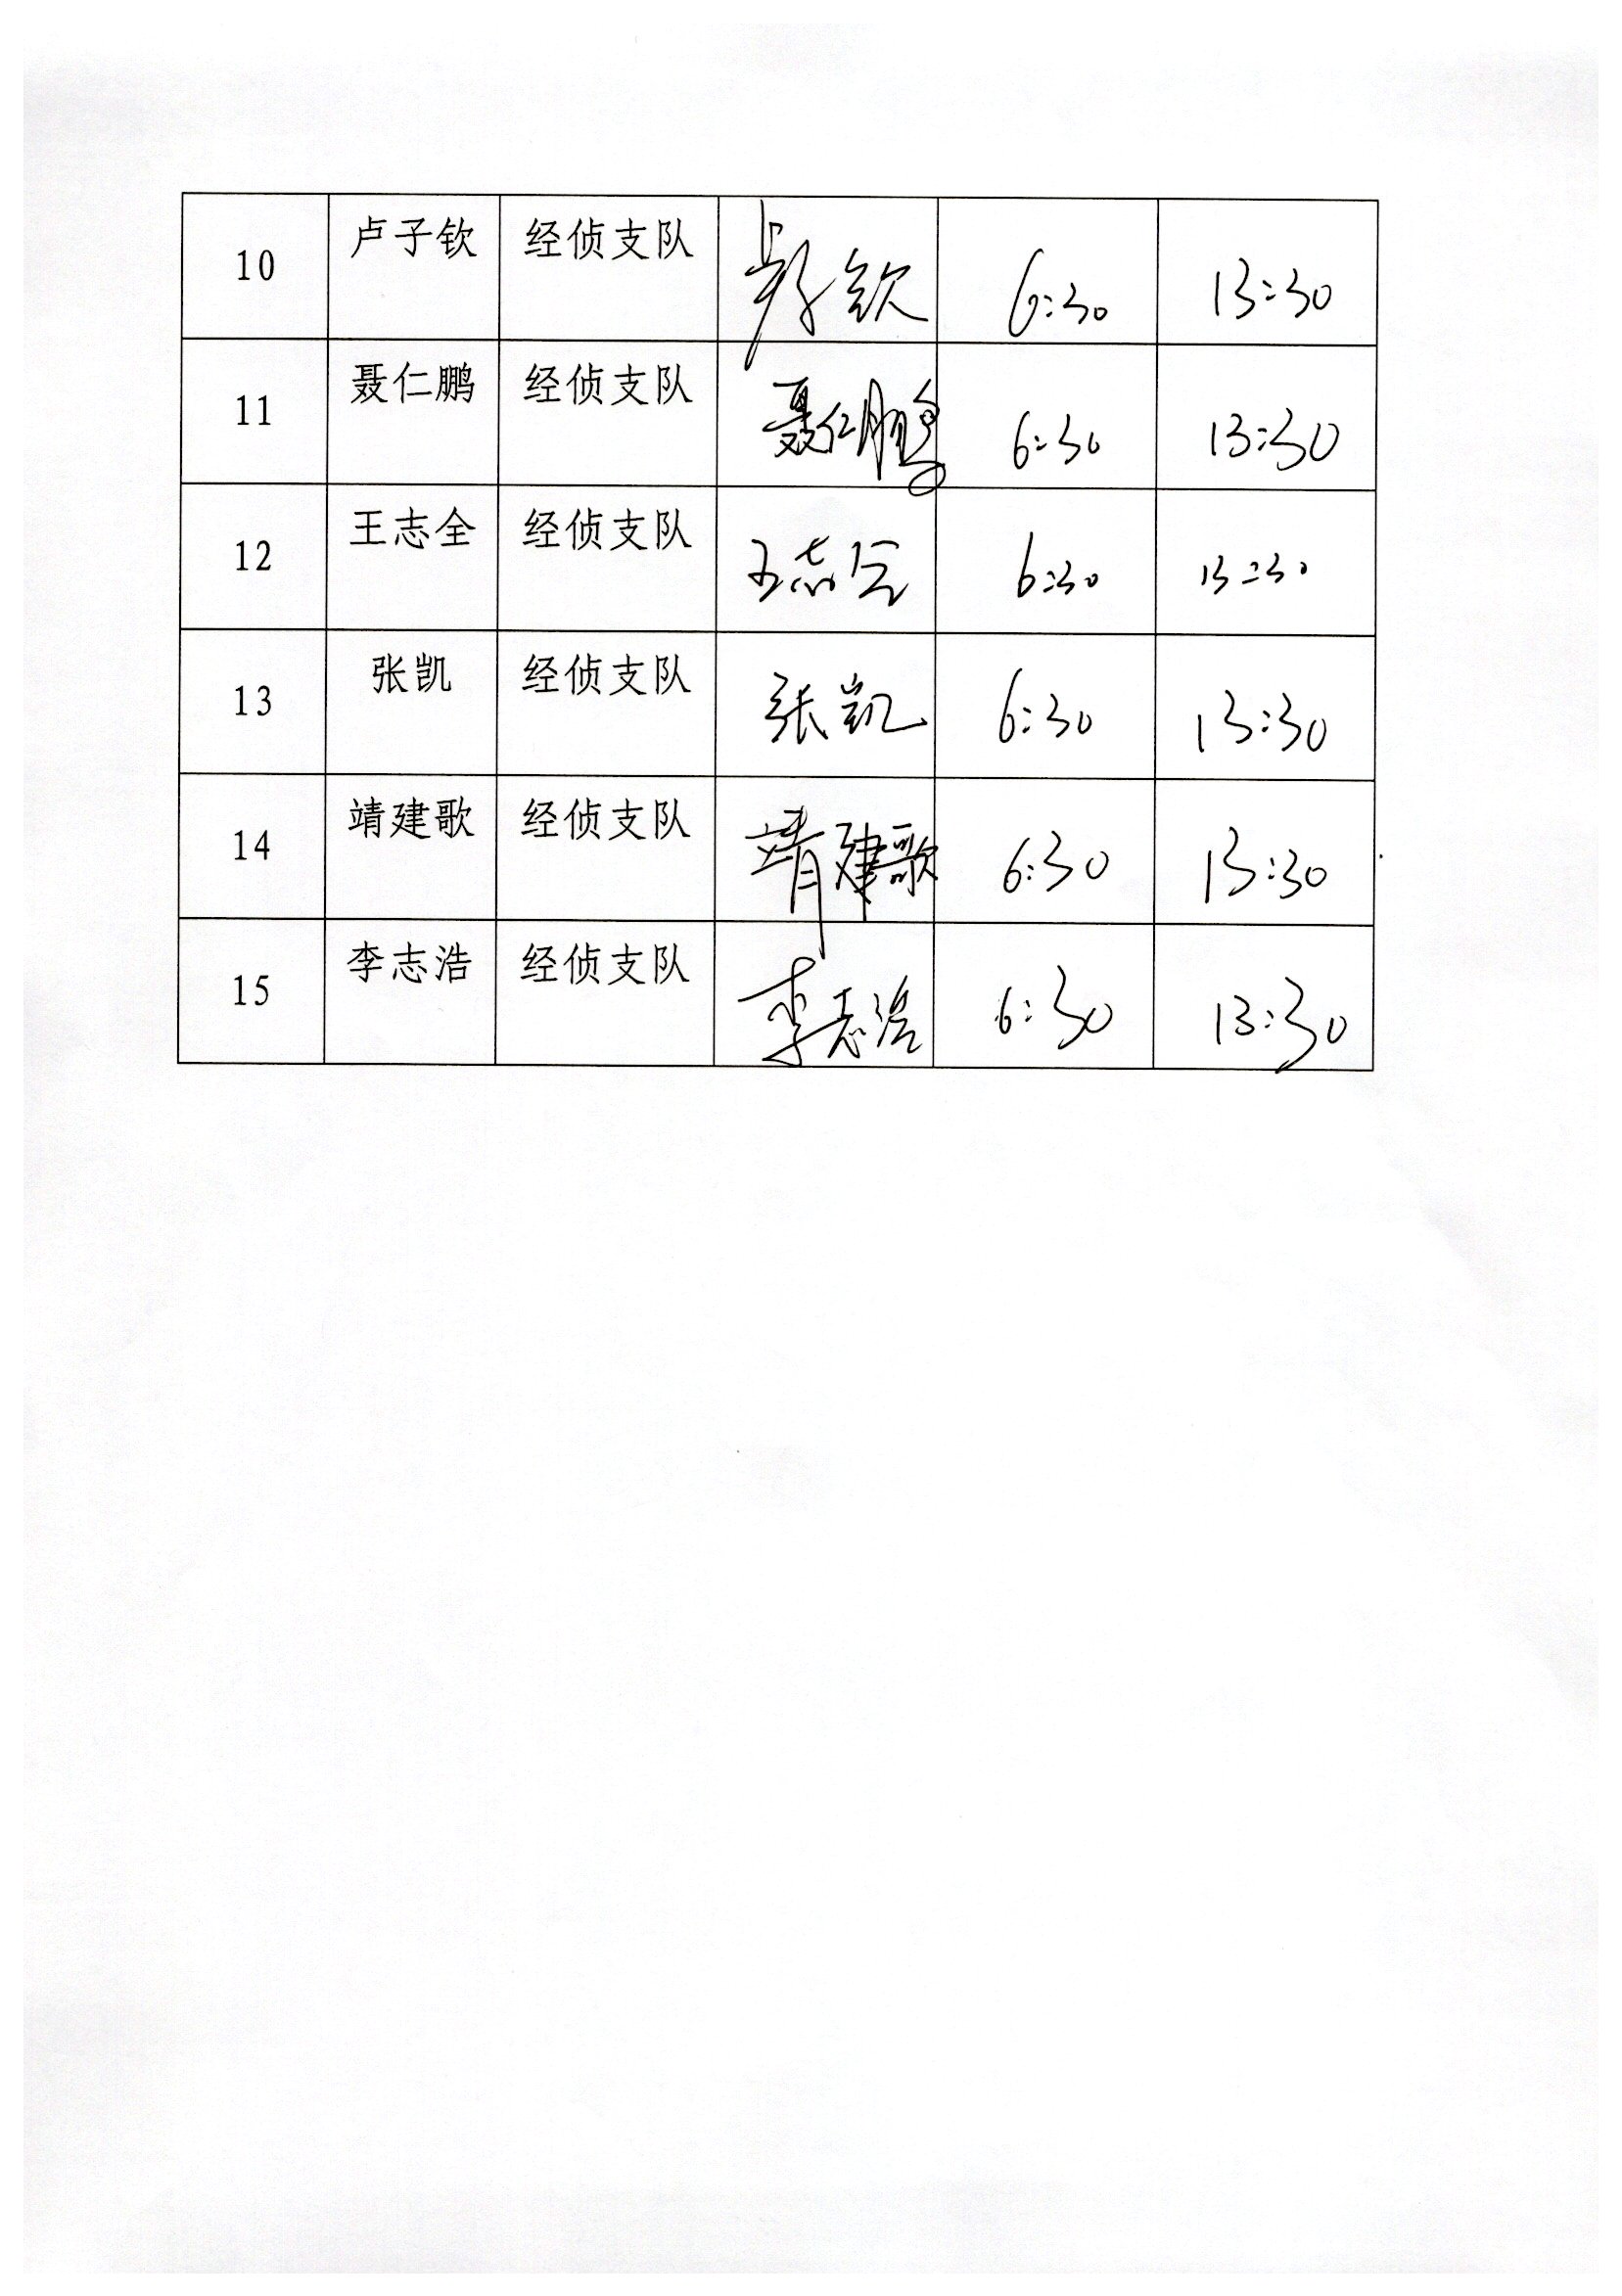 10 卢子钦 经侦支队 卢子钦 6:30 13:30
11 聂仁鹏 经侦支队 聂仁鹏 6:30 13:30
12 王志全 经侦支队 王志全 6:30 13:30
13 张凯 经侦支队 张凯 6:30 13:30
14 靖建歌 经侦支队 靖建歌 6:30 13:30
15 李志浩 经侦支队 李志浩 6:30 13:30